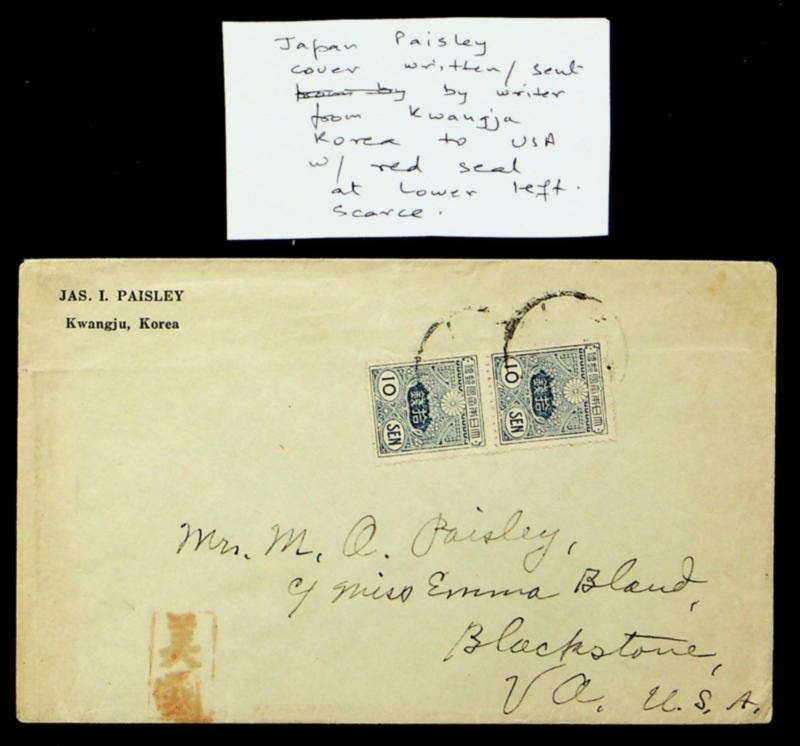 Japan Paisley
cover written/sent
from by by writer
from Kwangja
Korea to USA
w/ red seal
at Lower left.
Scarce.
JAS. I. PAISLEY
Kwangju, Korea
10 SEN
拾銭
大日本帝國郵便
10 SEN
拾銭
大日本帝國郵便
Mrs. M. Q. Paisley,
c/ Miss Emma Bland,
Blackstone,
Va. U.S.A.
美
國